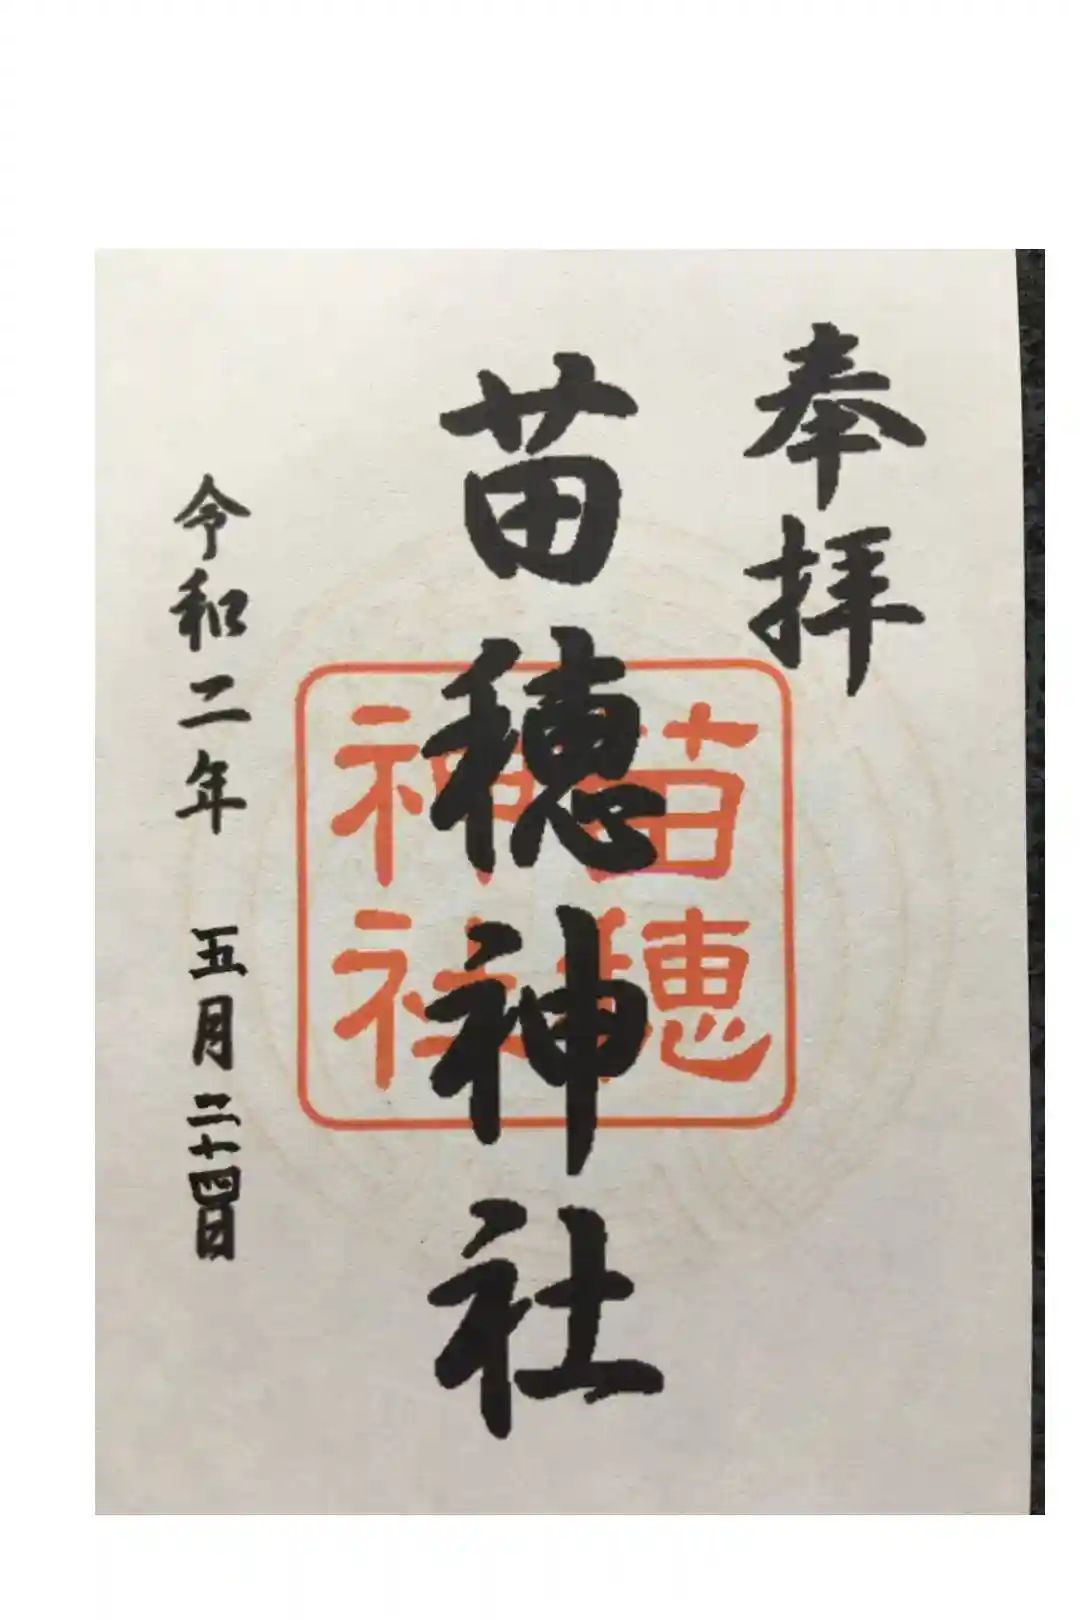 奉拝
苗穂神社
苗穂
神社
令和二年 五月二十四日